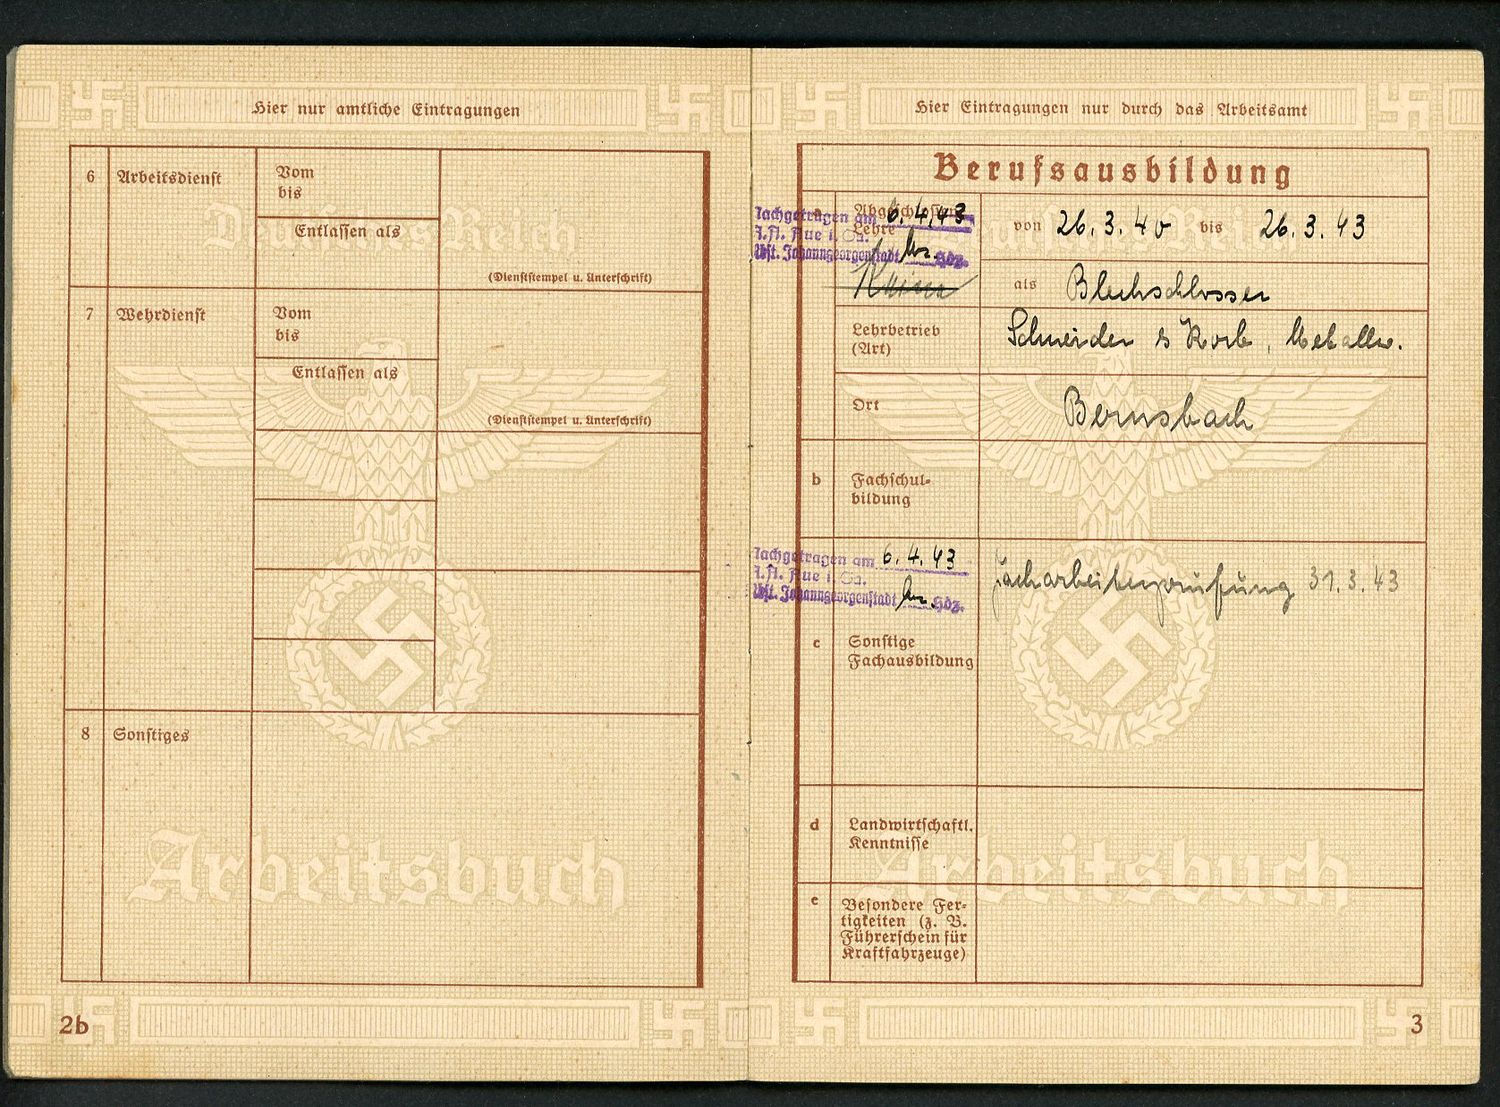 Hier nur amtliche Eintragungen
6 Arbeitsdienst
Vom
bis
Entlassen als
(Dienststempel u. Unterschrift)
7 Wehrdienst
Vom
bis
Entlassen als
(Dienststempel u. Unterschrift)
8 Sonstiges
Deutsches Reich
Arbeitsbuch
2b
Hier Eintragungen nur durch das Arbeitsamt
Berufsausbildung
Nachgetragen am 6.4.43
A.A. Aue i. Sa.
Nbst. Johanngeorgenstadt Hdz.
a Abgeschlossene
Lehre
Keine
von 26.3.40 bis 26.3.43
als Blechschlosser
Lehrbetrieb
(Art)
Schneider & Korb, Metallw.
Ort Bernsbach
b Fachschul-
bildung
Nachgetragen am 6.4.43
A.A. Aue i. Sa.
Nbst. Johanngeorgenstadt Hdz.
Facharbeiterprüfung 31.3.43
c Sonstige
Fachausbildung
d Landwirtschaftl.
Kenntnisse
e Besondere Fer-
tigkeiten (z. B.
Führerschein für
Kraftfahrzeuge)
Arbeitsbuch
3